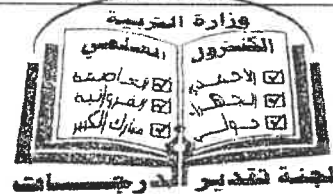 وزارة التربية
الكنترول
العلمي
☑ الأحمدي
☑ الجهراء
☑ حولي
☑ العاصمة
☑ الفروانية
☑ مبارك الكبير
لجنة تقدير الدرجات